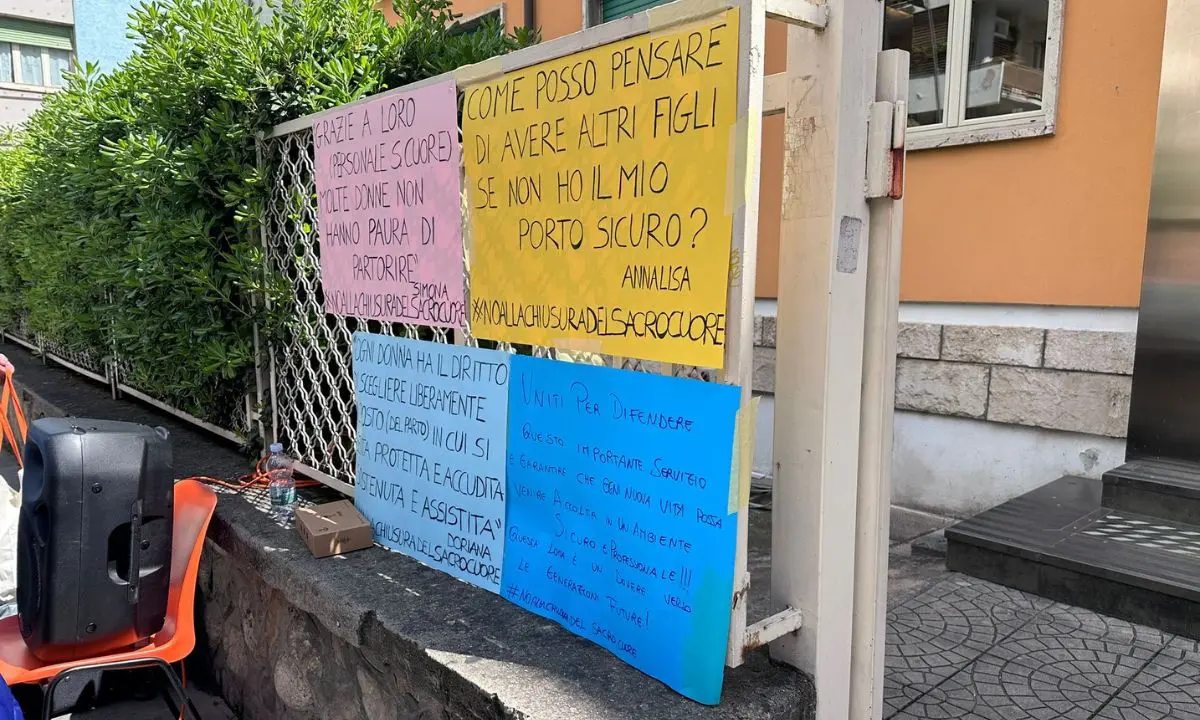 GRAZIE A LORO
(PERSONALE S.CUORE)
MOLTE DONNE NON
HANNO PAURA DI
PARTORIRE"
SIMONA
#NOALLACHIUSURADELSACROCUORE
COME POSSO PENSARE
DI AVERE ALTRI FIGLI
SE NON HO IL MIO
PORTO SICURO?
ANNALISA
#NOALLACHIUSURADELSACROCUORE
OGNI DONNA HA IL DIRITTO
SCEGLIERE LIBERAMENTE
(DEL PARTO) IN CUI SI
PROTETTA E ACCUDITA
E ASSISTITA"
DORIANA
UNITI PER DIFENDERE
QUESTO IMPORTANTE SERVIZIO
E GARANTIRE CHE OGNI NUOVA VITA POSSA
VENIRE ACCOLTA IN UN AMBIENTE
SICURO E PROFESSIONALE!!!
QUESTA LOTTA È UN DOVERE VERSO
LE GENERAZIONI FUTURE!